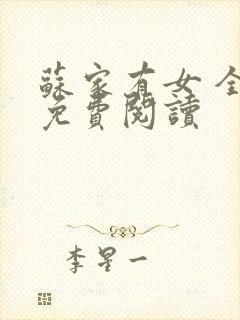 蘇家有女全
免費閱讀
李星一